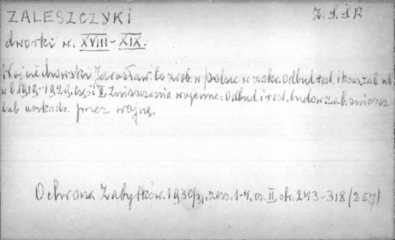 ZALESZCZYKI
Z.S.S.R
dworki w. XVIII-XIX.
Wojciechowski Jarosław. Co zrob. w polsce w zakr. Odbud. rest. i konserw. zab.
w l. 1919-1929, cz. II Zniszczenia wojenne. Odbud. i rest. budow. zab. zniszcz.
lub uszkodz. przez wojnę.
Ochrona Zabytków. 1930/31, zesz. 1-4, cz. II, str. 243-318 (257)